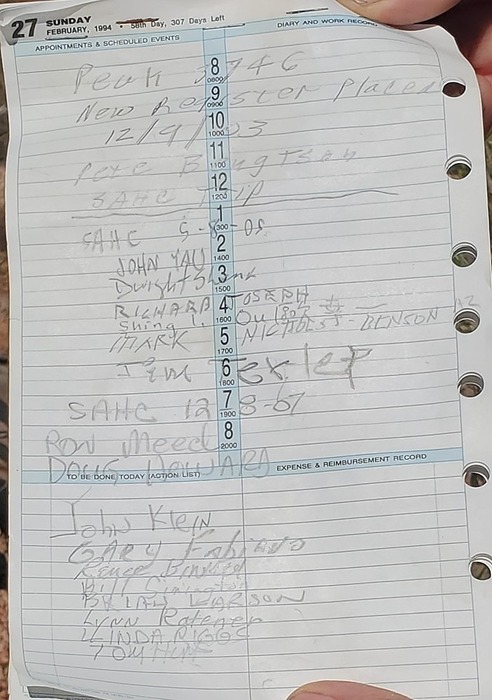 27 SUNDAY
FEBRUARY, 1994 • 58th Day, 307 Days Left
DIARY AND WORK RECORD
APPOINTMENTS & SCHEDULED EVENTS
8 0800
Peak 5746
9 0900
New Register Placed
10 1000
12/9/03
11 1100
Pete
12 1200
SAHC Trip
1 1300
SAHC 5-8-05
2 1400
JOHN YAU
3 1500
Dwight
4 1600
RICHARD JOSEPH
Shing
5 1700
MARK NICHOLS-BENSON
6 1800
Jim
7 1900
SAHC 12
8 2000
RON Meed
DOUG HOWARD
TO BE DONE TODAY (ACTION LIST)
EXPENSE & REIMBURSEMENT RECORD
John Klein
GARY
Renee
Bill
BRIAN LARSON
LYNN
LINDA RIGGS
TOM